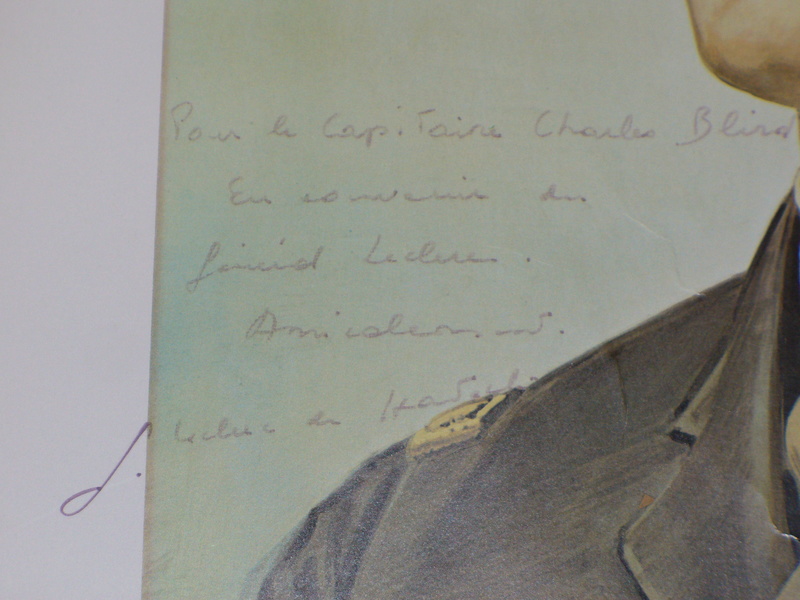 Pour le Capitaine Charles Blird
En souvenir du
général Leclerc.
Amicalement.
J. Leclerc de Hautecl